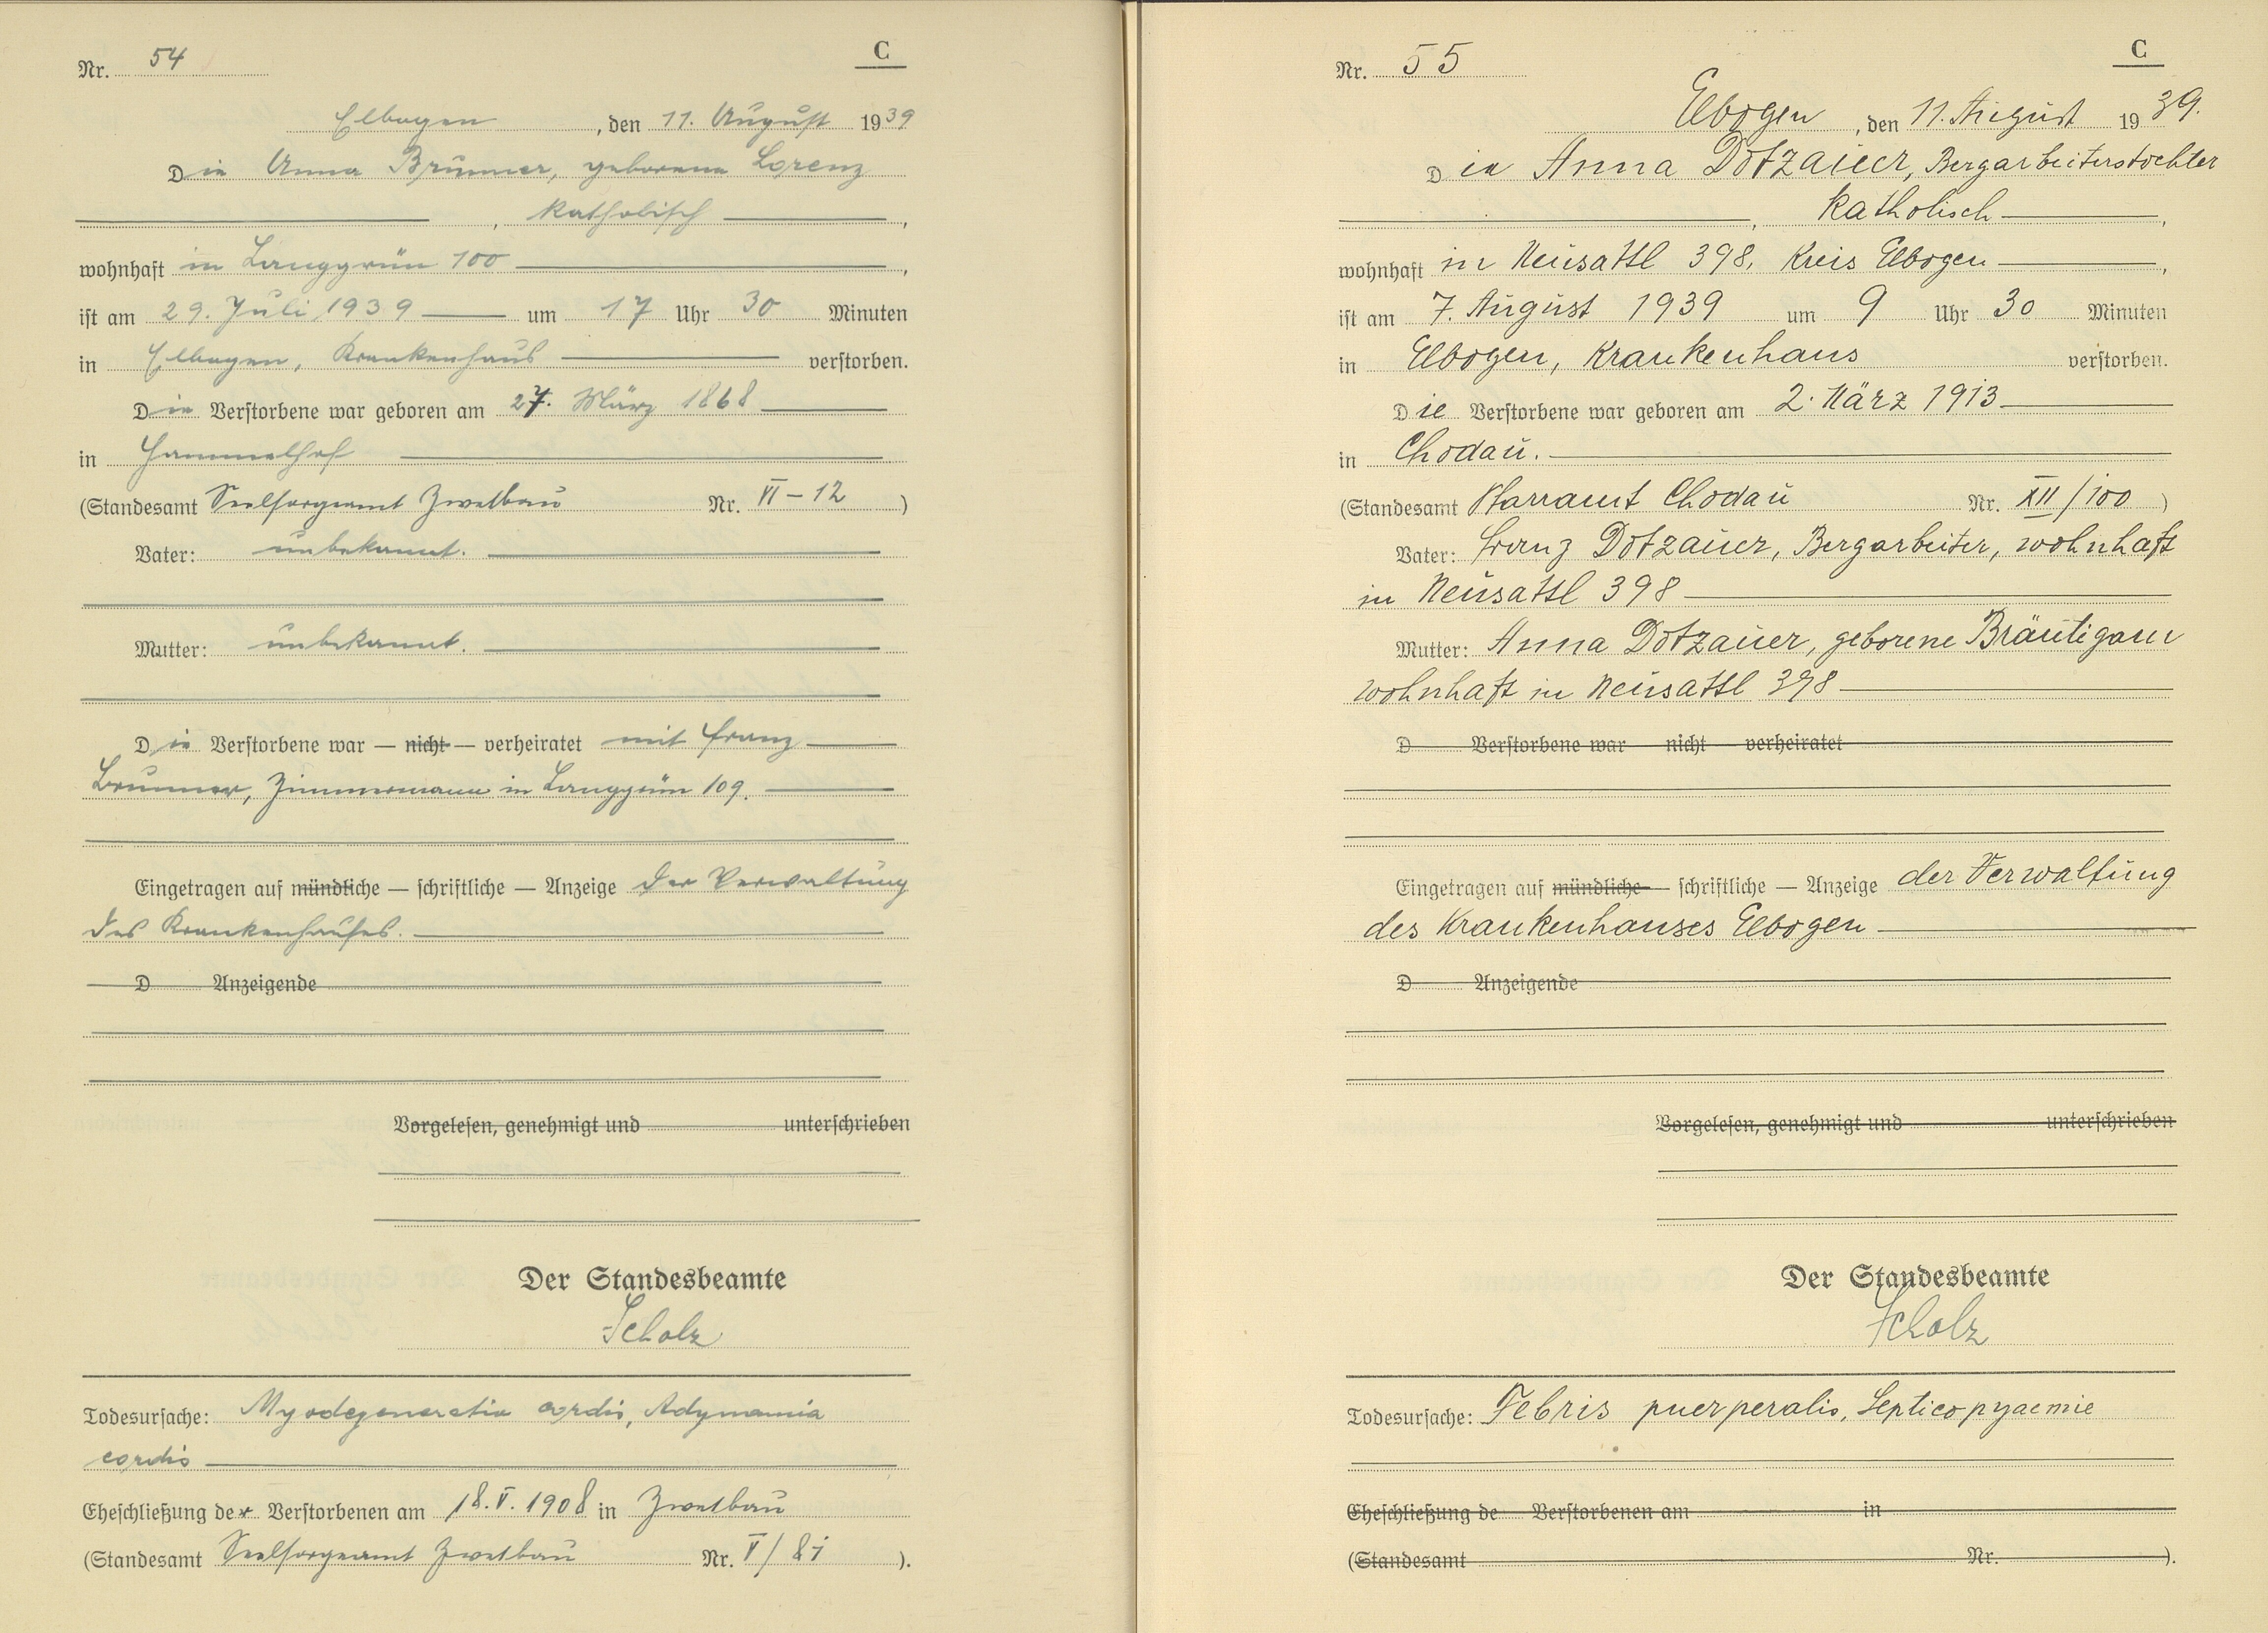 Nr. 54
C
Elbogen, den 11. August 1939
Die Anna Brunner, geborene Lorenz
, katholisch,
wohnhaft in Langgrün 100,
ist am 29. Juli 1939 um 17 Uhr 30 Minuten
in Elbogen, Krankenhaus verstorben.
Die Verstorbene war geboren am 27. März 1868
in Hammelhof
(Standesamt Seelsorgeamt Zwetbau Nr. VI-12)
Vater: unbekannt.
Mutter: unbekannt.
Die Verstorbene war — nicht — verheiratet mit Franz
Brunner, Zimmermann in Langgrün 109.
Eingetragen auf mündliche — schriftliche — Anzeige der Verwaltung
des Krankenhauses.
D Anzeigende
Vorgelesen, genehmigt und unterschrieben
Der Standesbeamte
Scholz
Todesursache: Myodegeneratio cordis, Adynamia
cordis
Eheschließung der Verstorbenen am 18.V.1908 in Zwetbau
(Standesamt Seelsorgeamt Zwetbau Nr. V/81).
Nr. 55
C
Elbogen, den 11. August 1939.
Die Anna Dotzauer, Bergarbeiterstochter
, katholisch,
wohnhaft in Neusattl 398, Kreis Elbogen,
ist am 7. August 1939 um 9 Uhr 30 Minuten
in Elbogen, Krankenhaus verstorben.
Die Verstorbene war geboren am 2. März 1913
in Chodau.
(Standesamt Pfarramt Chodau Nr. XII/100)
Vater: Franz Dotzauer, Bergarbeiter, wohnhaft
in Neusattl 398
Mutter: Anna Dotzauer, geborene Bräutigam
wohnhaft in Neusattl 398
D Verstorbene war — nicht — verheiratet
Eingetragen auf mündliche — schriftliche — Anzeige der Verwaltung
des Krankenhauses Elbogen
D Anzeigende
Vorgelesen, genehmigt und unterschrieben
Der Standesbeamte
Scholz
Todesursache: Febris puerperalis, Septicopyaemie
Eheschließung de Verstorbenen am in
(Standesamt Nr. ).